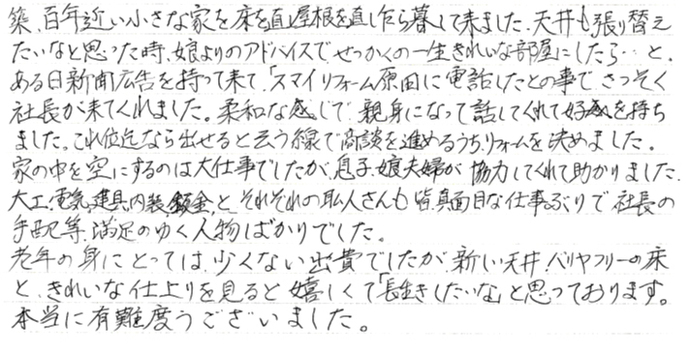 築、百年近い小さな家を床を直し屋根を直し乍ら暮して来ました、天井も張り替え
たいなと思った時、娘よりのアドバイスでせっかくの一生きれいな部屋にしたら…と、
ある日新聞広告を持って来て、「スマイルリフォーム原田に電話したとの事でさっそく
社長が来てくれました。柔和な感じで、親身になって話してくれて好感を持ち
ました。これ位迄なら出せると云う線で商談を進めるうち、リフォームを決めました。
家の中を空にするのは大仕事でしたが、息子、娘夫婦が協力してくれて助かりました。
大工、電気、建具、内装、鈑金、と、それぞれの職人さんも皆、真面目な仕事ぶりで、社長の
手配等、満足のゆく人物ばかりでした。
老年の身にとっては、少くない出費でしたが、新しい天井、バリヤフリーの床
と、きれいな仕上りを見ると嬉しくて「長生きしたいな」と思っております。
本当に有難度うございました。